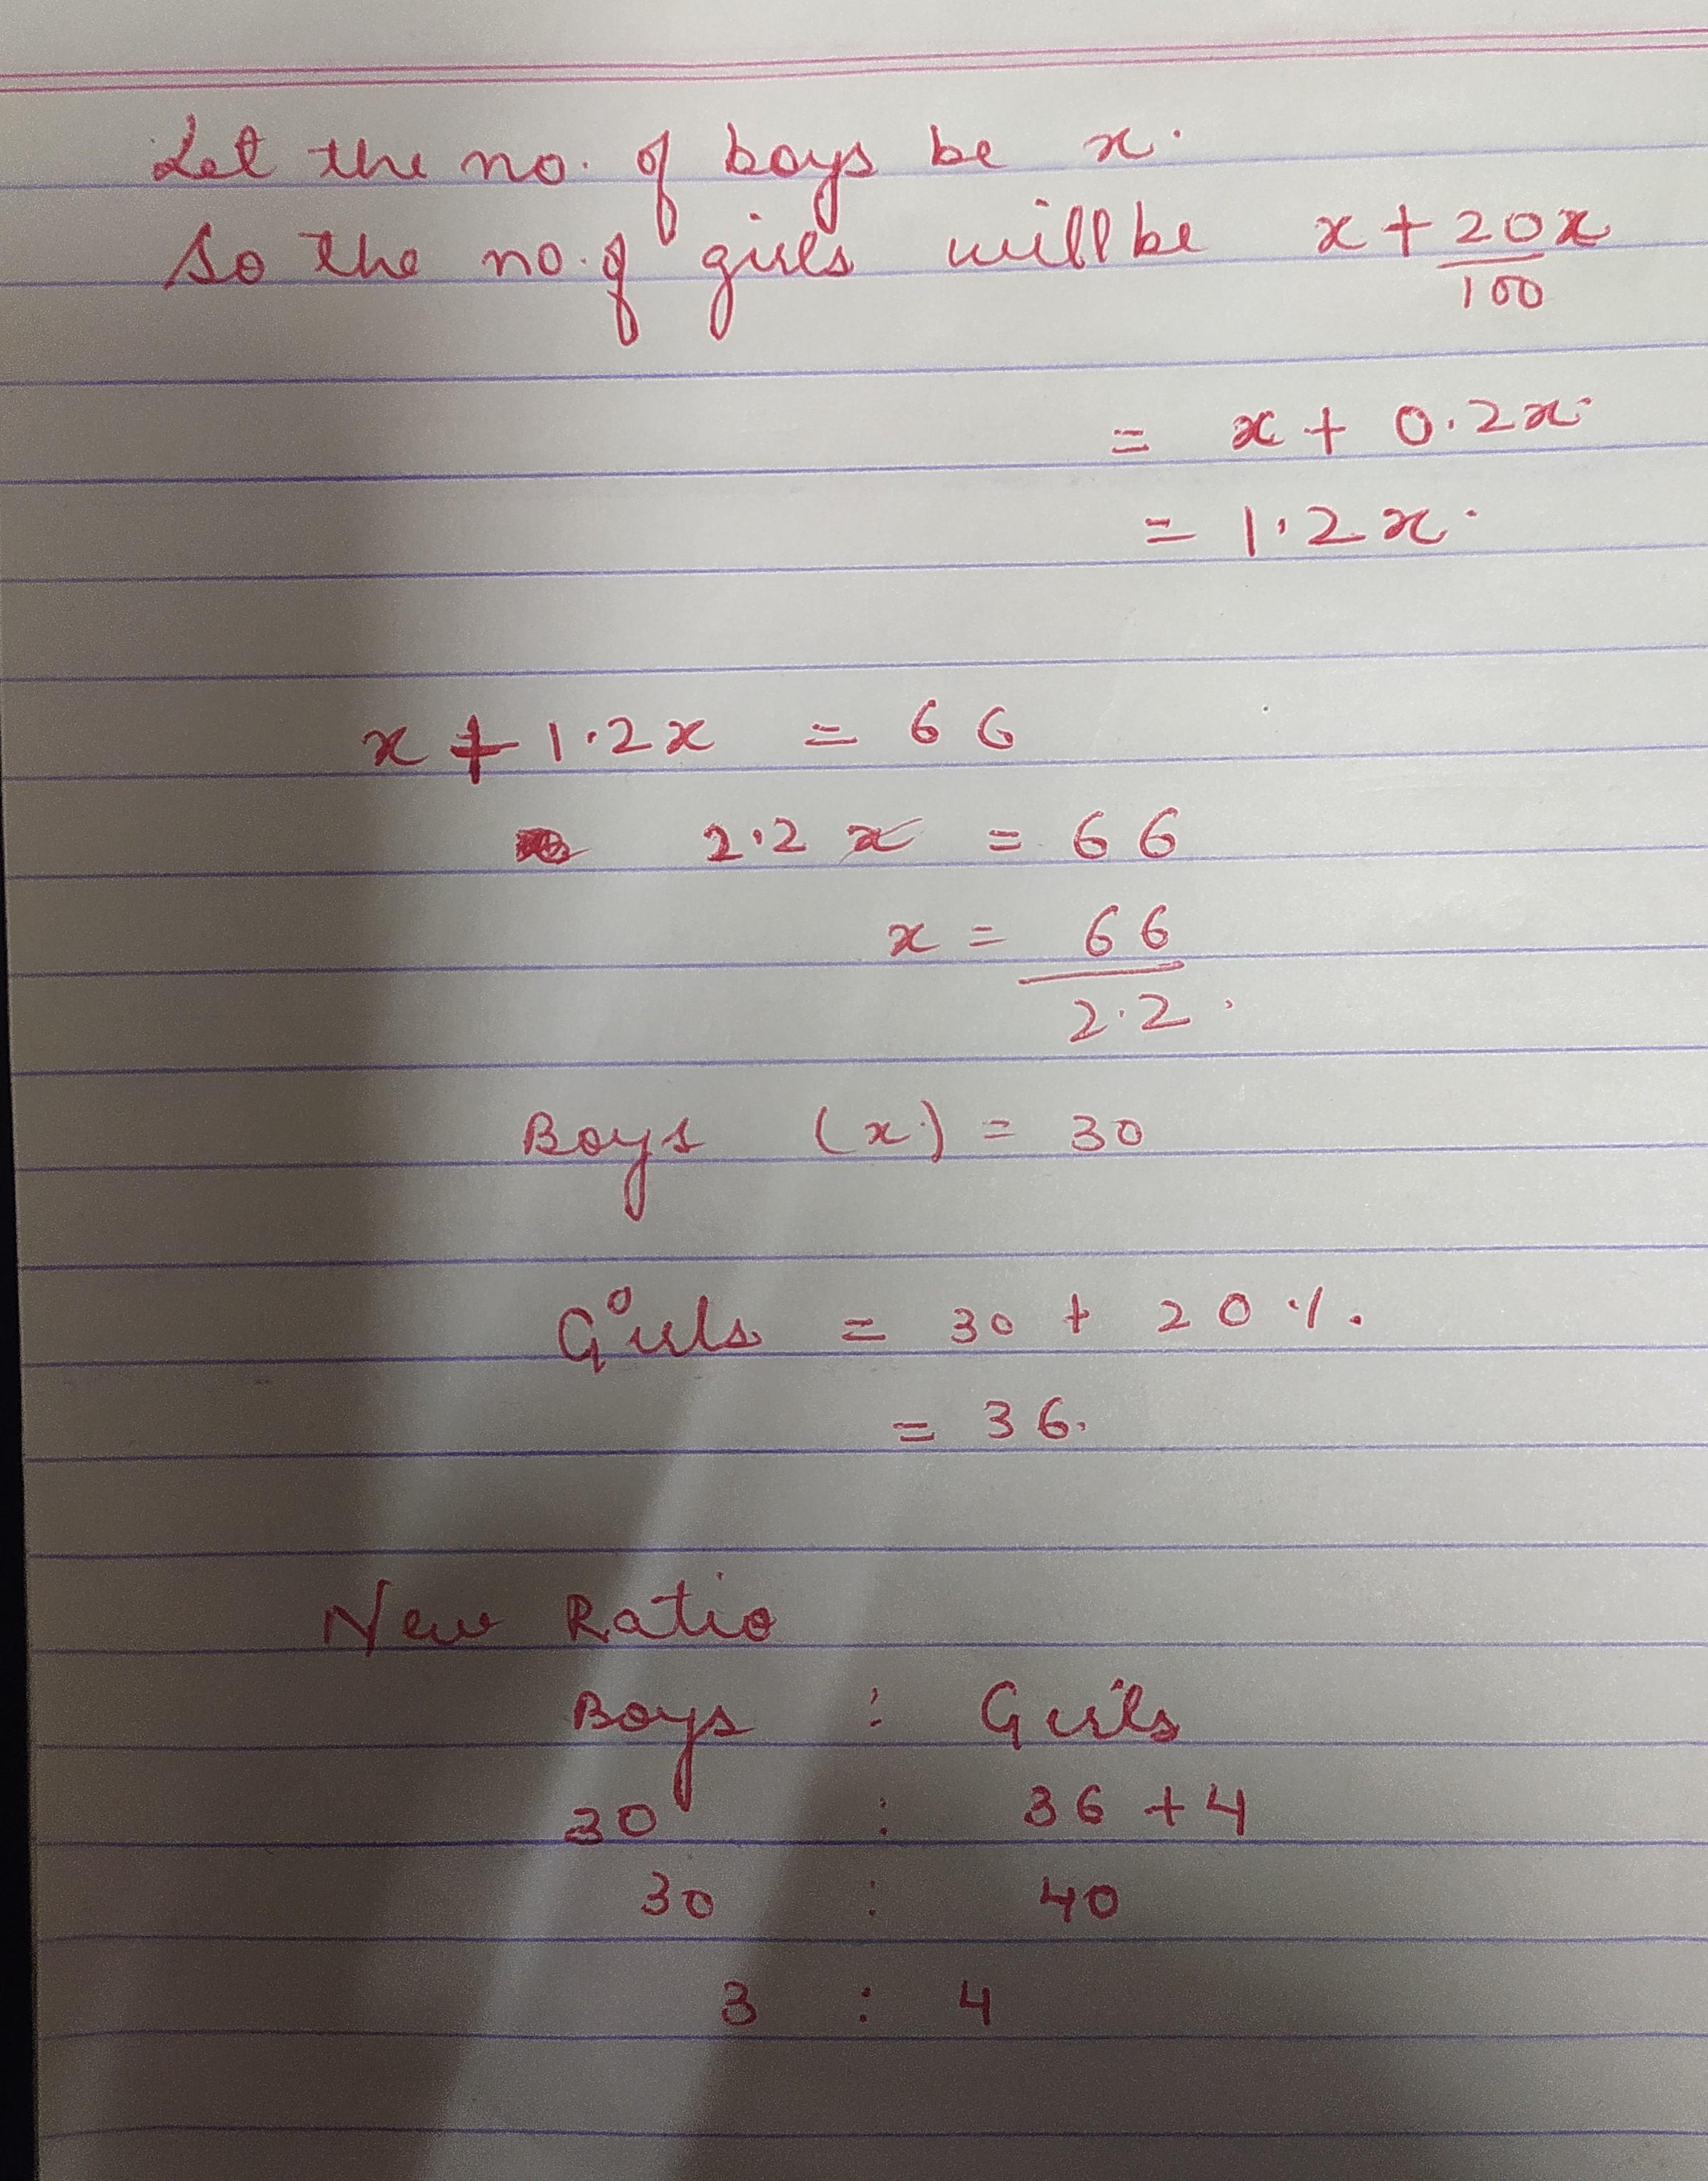 Let the no. of boys be x.
So the no. of girls will be x + 20x/100
= x + 0.2x.
= 1.2x.
x + 1.2x = 66
2.2x = 66
x = 66/2.2.
Boys (x) = 30
Girls = 30 + 20%.
= 36.
New Ratio
Boys : Girls
30 : 36 + 4
30 : 40
3 : 4